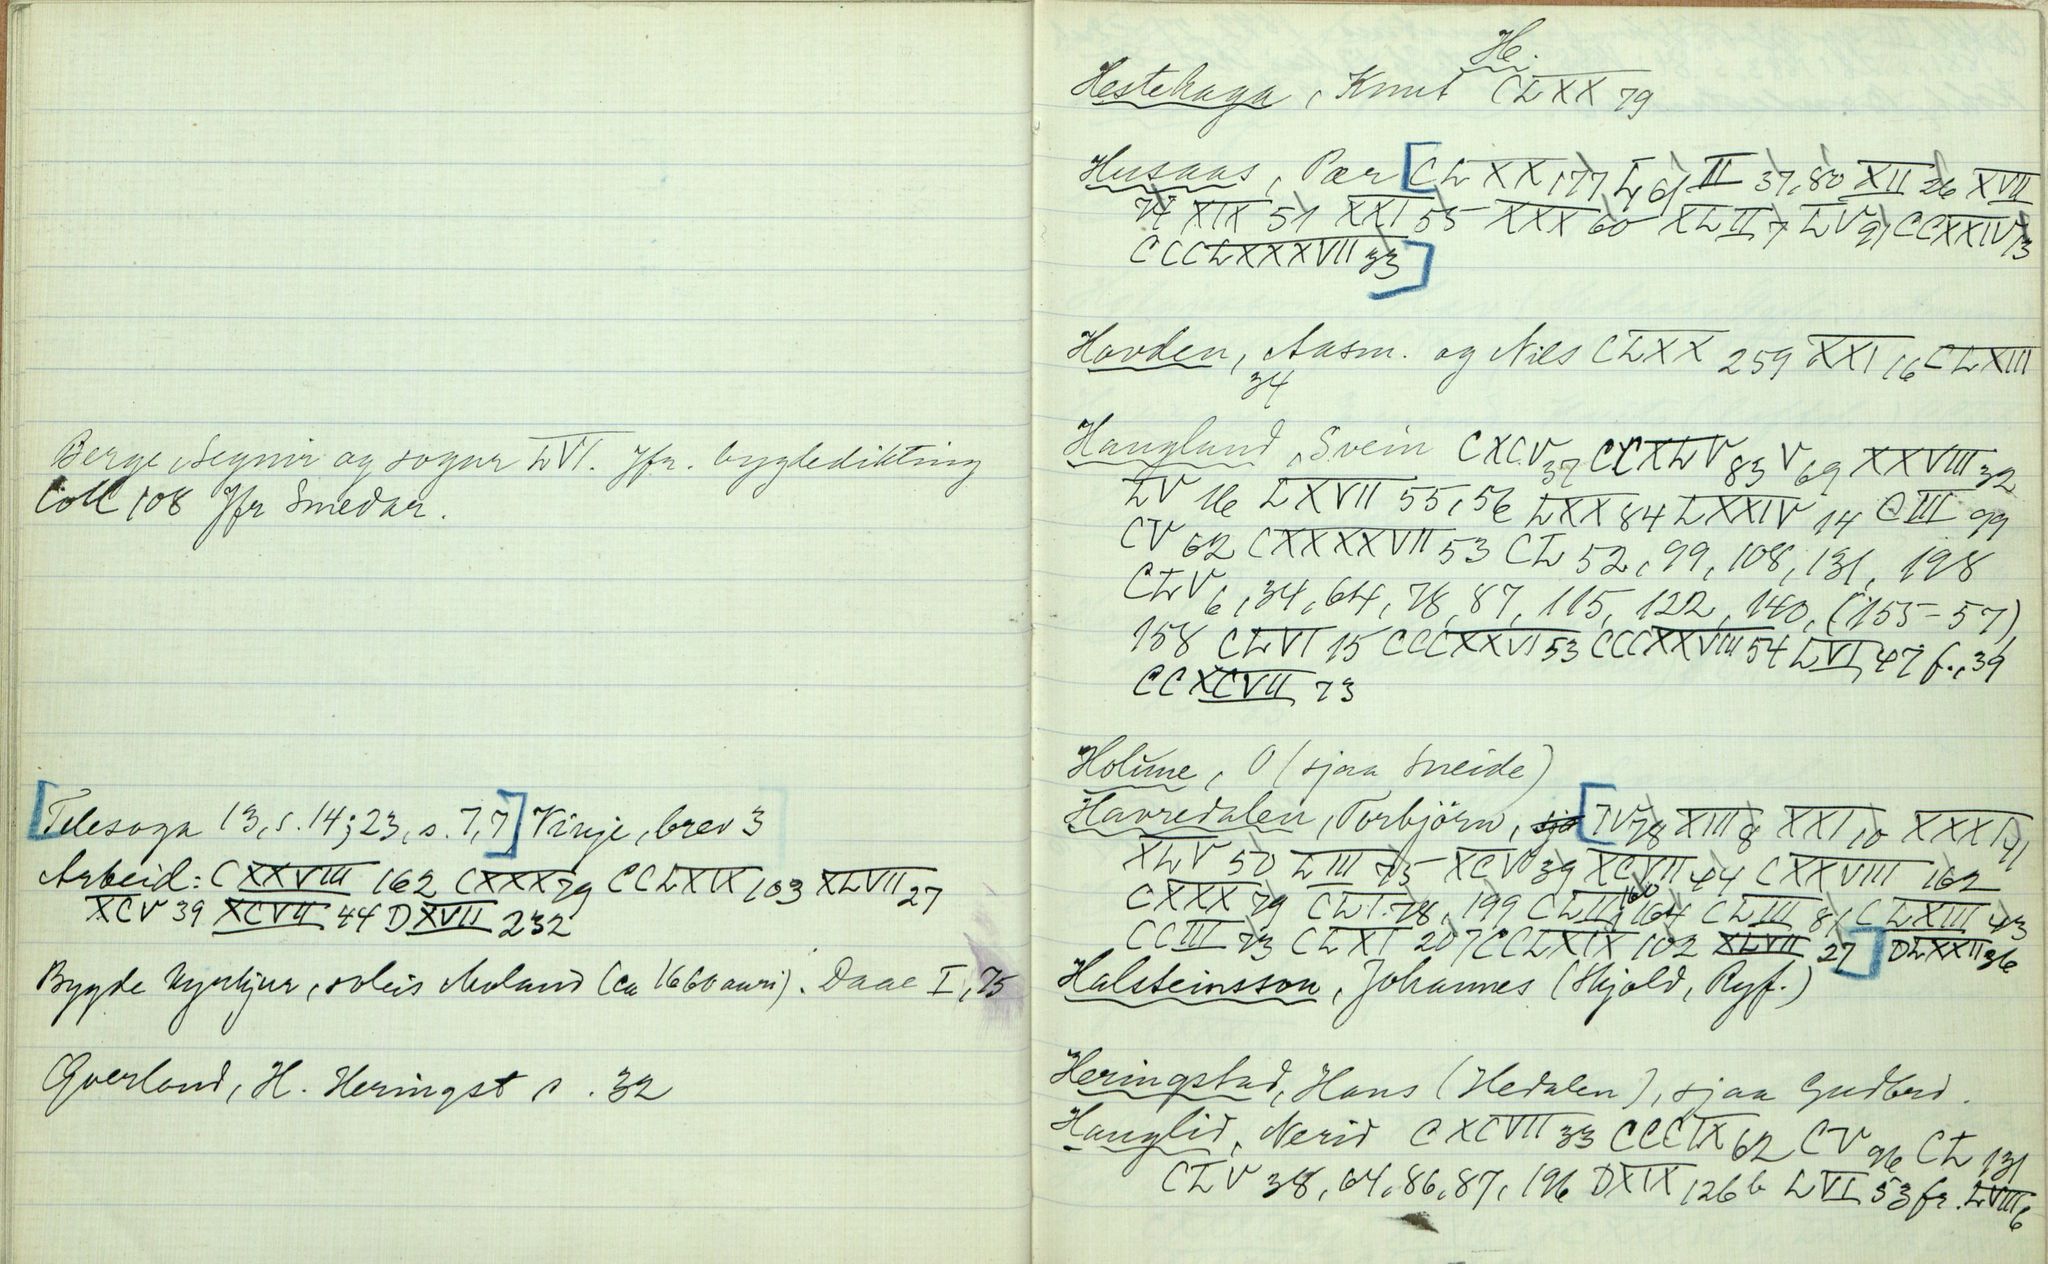 Berge, Segnir og sogur LVI. Jfr. bygdedikting
Coll 108 Jfr Smedar.
[Telesoga 13, s. 14; 23, s. 7, 7] Vinje, brev 3
Arbeid: CXXVIII 162 CXXX 79 CCLXIX 103 XLVII 27
XCV 39 XCVII 44 DXVII 232
Bygde kyrkjur, soleis Moland (ca 1660 aari). Daae I, 75
Qverland, H. Heringst s. 32
H.
Hestehaga, Knut CLXX 79
Husaas, Pær [CLXX 177 L 61 III 37, 80 XII 26 XVII
74 XIX 51 XXI 55 XXX 60 XLII 7 LV 91 CCXXIV 13
CCCLXXXVII 33]
Hovden, Aasm. og Nils CLXX 259 XXI 16 CLXIII
34
Haugland, Svein CXCV 37 CCXLV 83 V 69 XXVIII 32
LV 16 LXVII 55, 56 LXX 84 LXXIV 14 CIII 99
CV 62 CXXXXVII 53 CL 52, 99, 108, 131, 198
CLV 6, 34, 64, 78, 87, 115, 122, 140, (155-57),
158 CLVI 15 CCCXXVI 53 CCCXXVIII 54 LVI 47 f., 39
CCXCVII 73
Holme, O (sjaa Sneide)
Havredalen, Torbjörn, sjå [IV 78 XIII 8 XXI 10 XXXI 71
XLV 50 LIII 75 XCV 39 XCVII 44 CXXVIII 162
CXXX 79 CLI 78, 199 CLII 160, 164 CLIII 81 CLXIII 43
CCIII 73 CLXI 207 CCLXIX 102 XLVII 27] DLXXII 36
Halsteinsson, Johannes (Skjold, Ryf.)
Heringstad, Hans (Hedalen), sjaa Gudbrd.
Hauglid, Nerid CXCVII 33 CCCIX 62 CV 96 CL 131
CLV 38, 64, 86, 87, 196 DXIX 126 b LVI 53 fr. LVIII 6